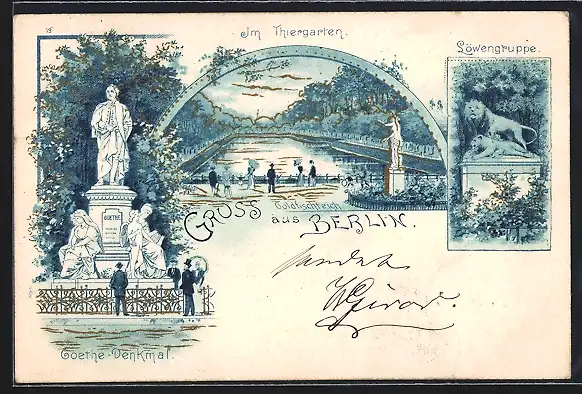 Im Thiergarten.
Löwengruppe.
GOETHE
Goldfischteich
GRUSS aus BERLIN.
sendet
Goethe-Denkmal.